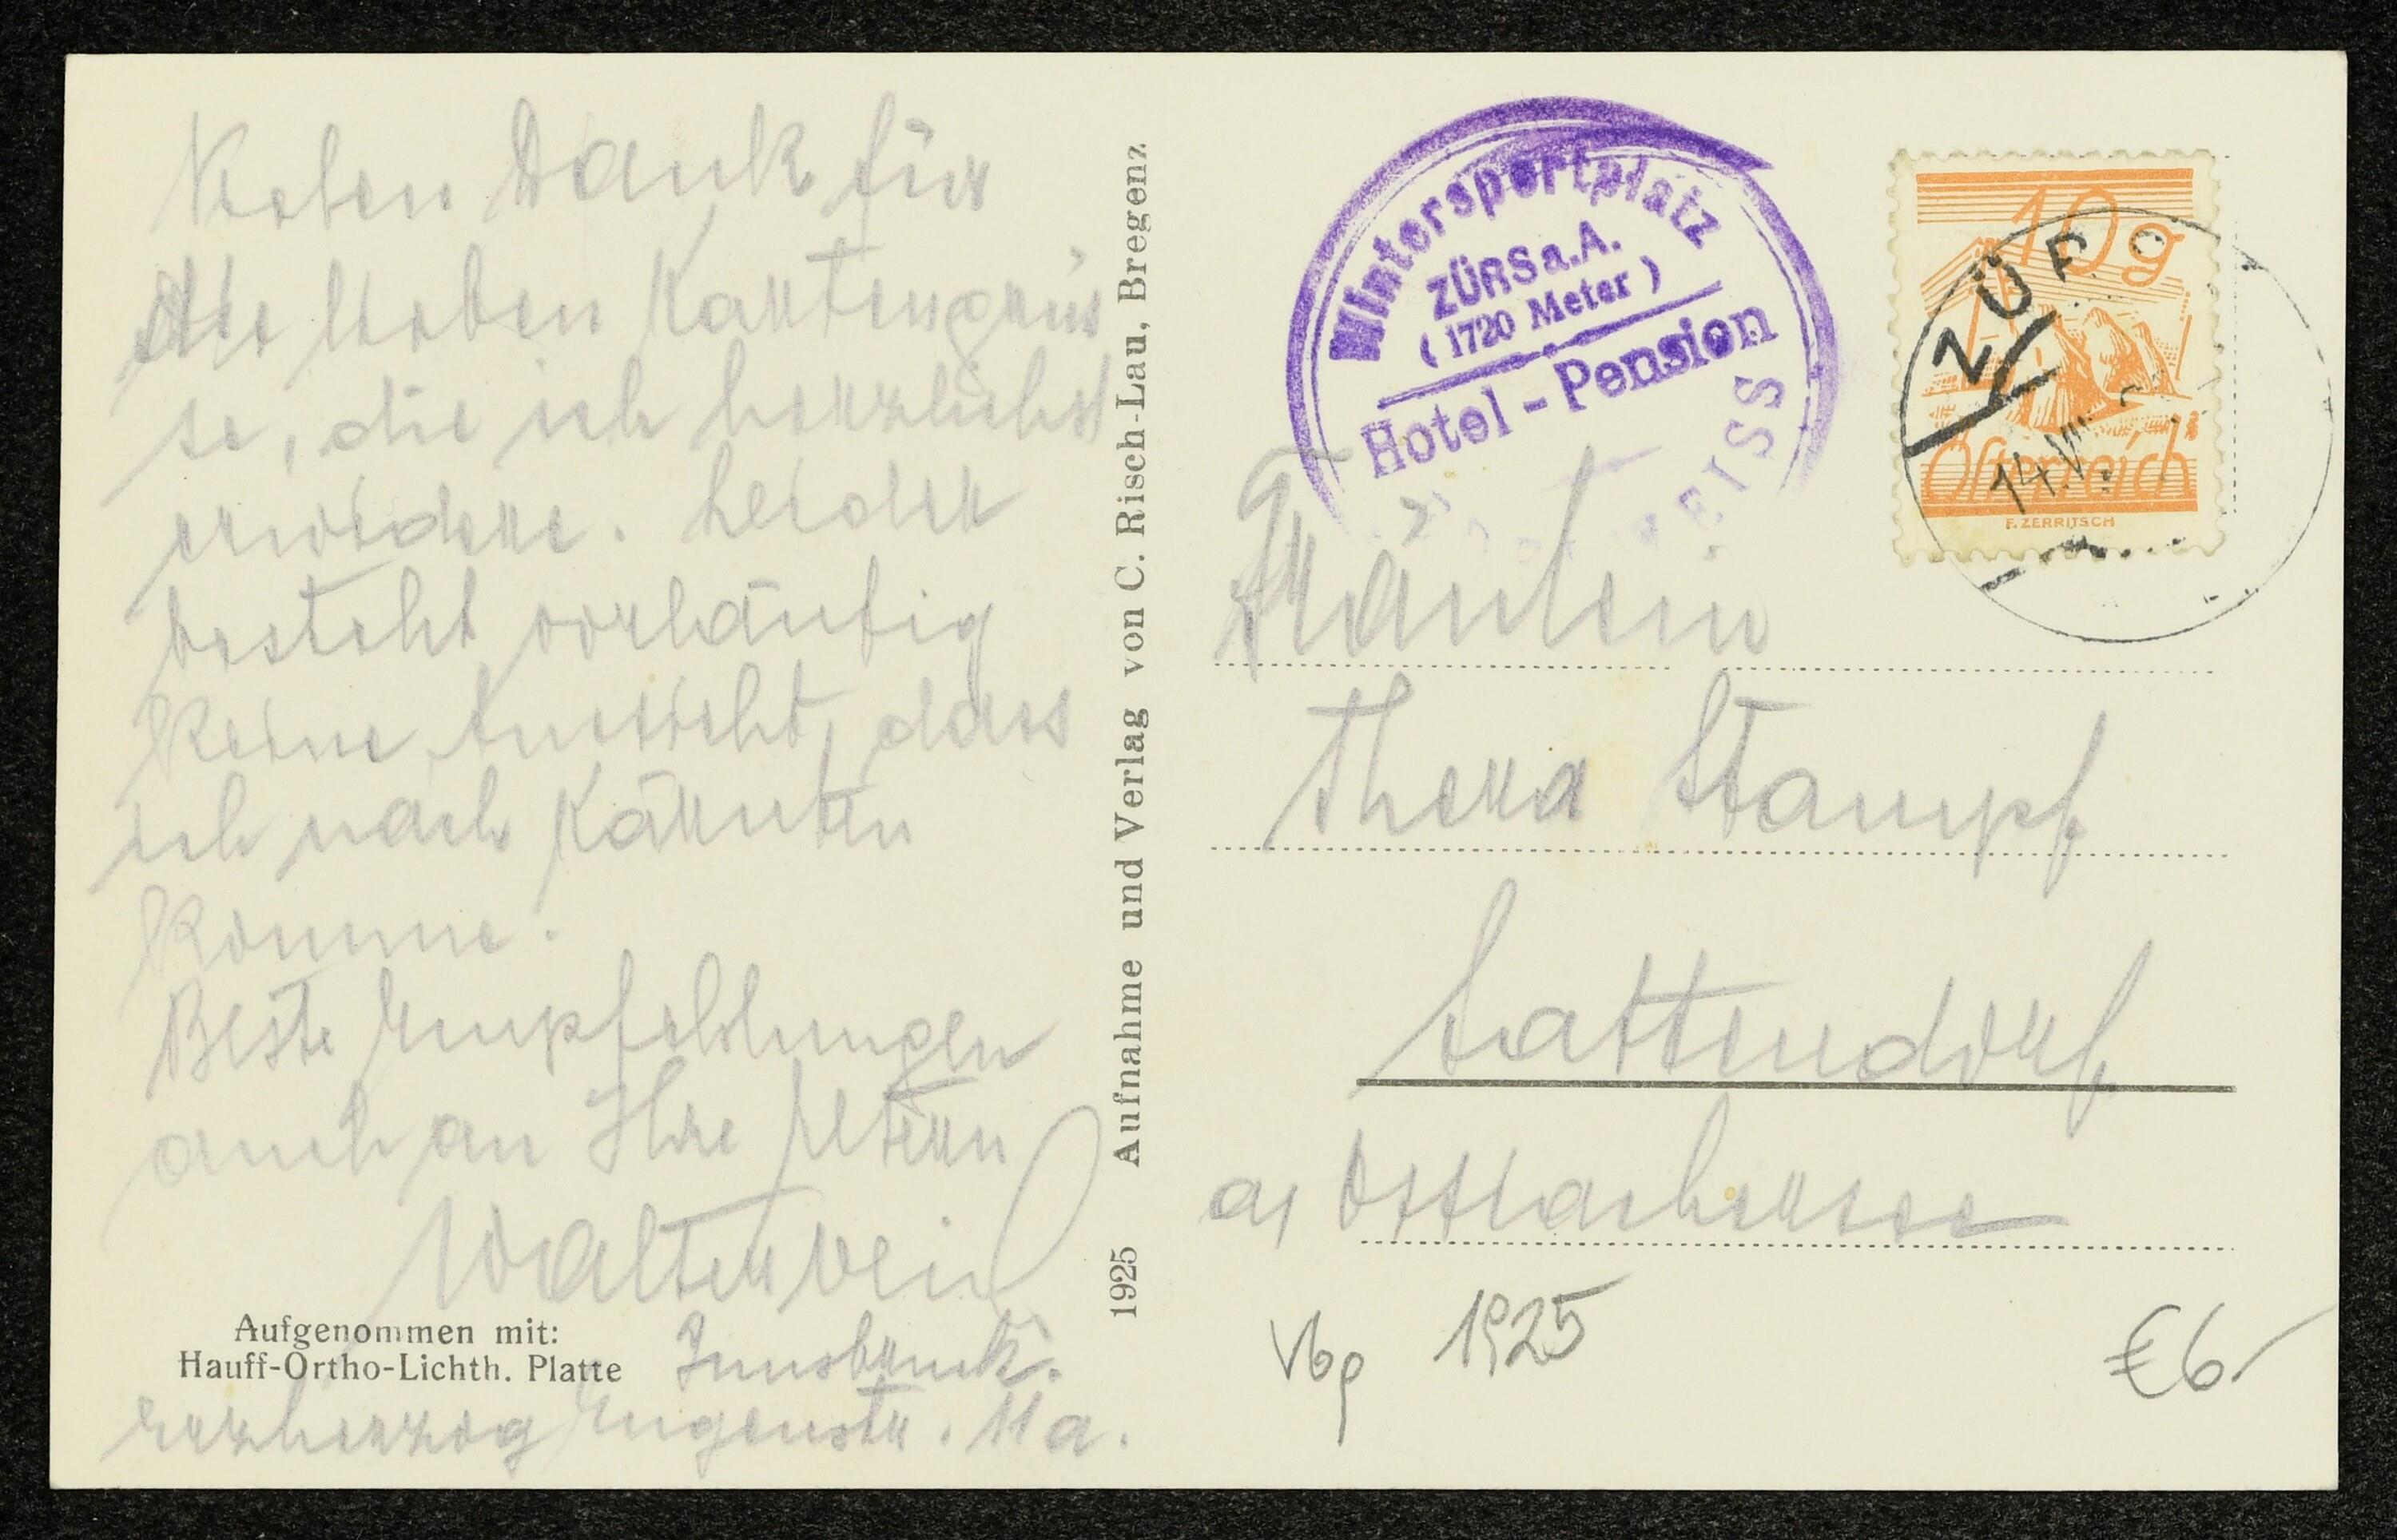 Vielen Dank für
die lieben Kartengrüs
se, die ich herzlichst
erwidere. Leider
besteht vorläufig
keine Aussicht, dass
ich nach Kärnten
komme.
Beste Empfehlungen
auch an Ihre Eltern
Walter
Innsbruck.
Erzherzog Eugenstr. 11a.
Aufgenommen mit:
Hauff-Ortho-Lichth. Platte
1925 Aufnahme und Verlag von C. Risch-Lau, Bregenz
Wintersportplatz
ZÜRS a. A.
( 1720 Meter )
Hotel - Pension
EDELWEISS
10g
Österreich
F. ZERRITSCH
ZÜRS
14.VII
Fräulein
Thera Stampf
Sattendorf
a/ Ossiachersee
Vbg 1925
€6